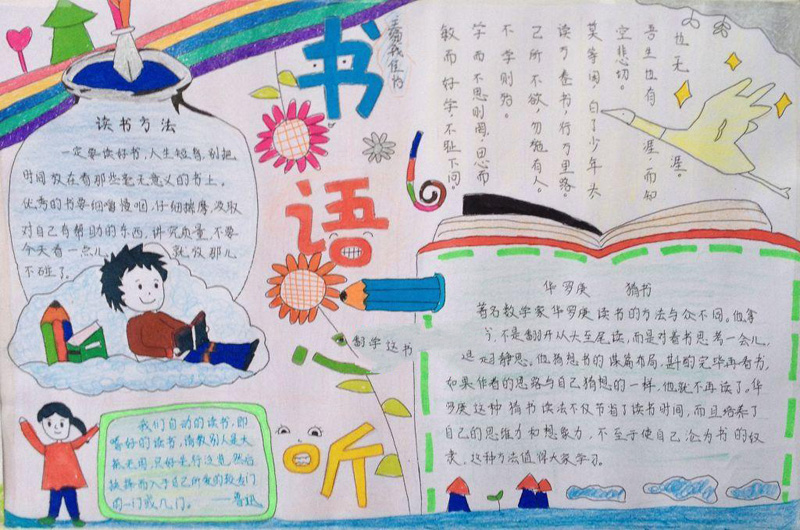 书
语
听
读书方法
一定要读好书,人生短暂,别把
时间放在看那些毫无意义的书上。
优秀的书要细嚼慢咽,仔细揣摩,汲取
对自己有帮助的东西,讲究质量,不要
今天看一点儿,就没那儿
不碰了。
我们自动的读书,即
嗜好的读书,请教别人是大
抵无用,只好先行泛览,然后
抉择而入于自己所爱的较专门
的一门或几门。
——鲁迅
敏而好学,不耻下问。
学而不思则罔,思而
不学则殆。
己所不欲,勿施有人。
读万卷书,行万里路。
莫等闲,白了少年头
空悲切。
吾生也有涯,而知
也无涯。
翻学这书
华罗庚 猜书
著名数学家华罗庚读书的方法与众不同。他拿
不是翻开从头至尾读,而是对着书思考一会儿,
闭目静思。他猜想书的谋篇布局,斟酌完毕再看书,
如果作者的思路与自己猜想的一样,他就不再读了。华
罗庚这种猜书读法不仅节省了读书时间,而且培养了
自己的思维力和想象力,不至于使自己沦为书的奴
隶,这种方法值得大家学习。